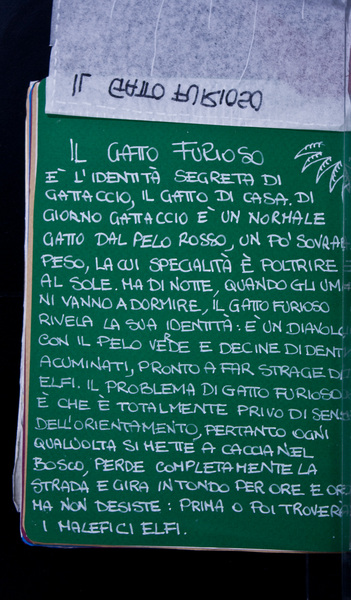 IL GATTO FURIOSO
IL GATTO FURIOSO
E' L'IDENTITÀ SEGRETA DI
GATTACCIO, IL GATTO DI CASA. DI
GIORNO GATTACCIO E' UN NORMALE
GATTO DAL PELO ROSSO, UN PO' SOVRAP
PESO, LA CUI SPECIALITÀ È POLTRIRE
AL SOLE. MA DI NOTTE, QUANDO GLI UMA
NI VANNO A DORMIRE, IL GATTO FURIOSO
RIVELA LA SUA IDENTITÀ: E' UN DIAVOLO
CON IL PELO VERDE E DECINE DI DENTI
ACUMINATI, PRONTO A FAR STRAGE DI
ELFI. IL PROBLEMA DI GATTO FURIOSO
È CHE È TOTALMENTE PRIVO DI SENS
DELL'ORIENTAMENTO, PERTANTO OGNI
QUALVOLTA SI METTE A CACCIA NEL
BOSCO, PERDE COMPLETAMENTE LA
STRADA E GIRA IN TONDO PER ORE E ORE
MA NON DESISTE: PRIMA O POI TROVERÀ
I MALEFICI ELFI.